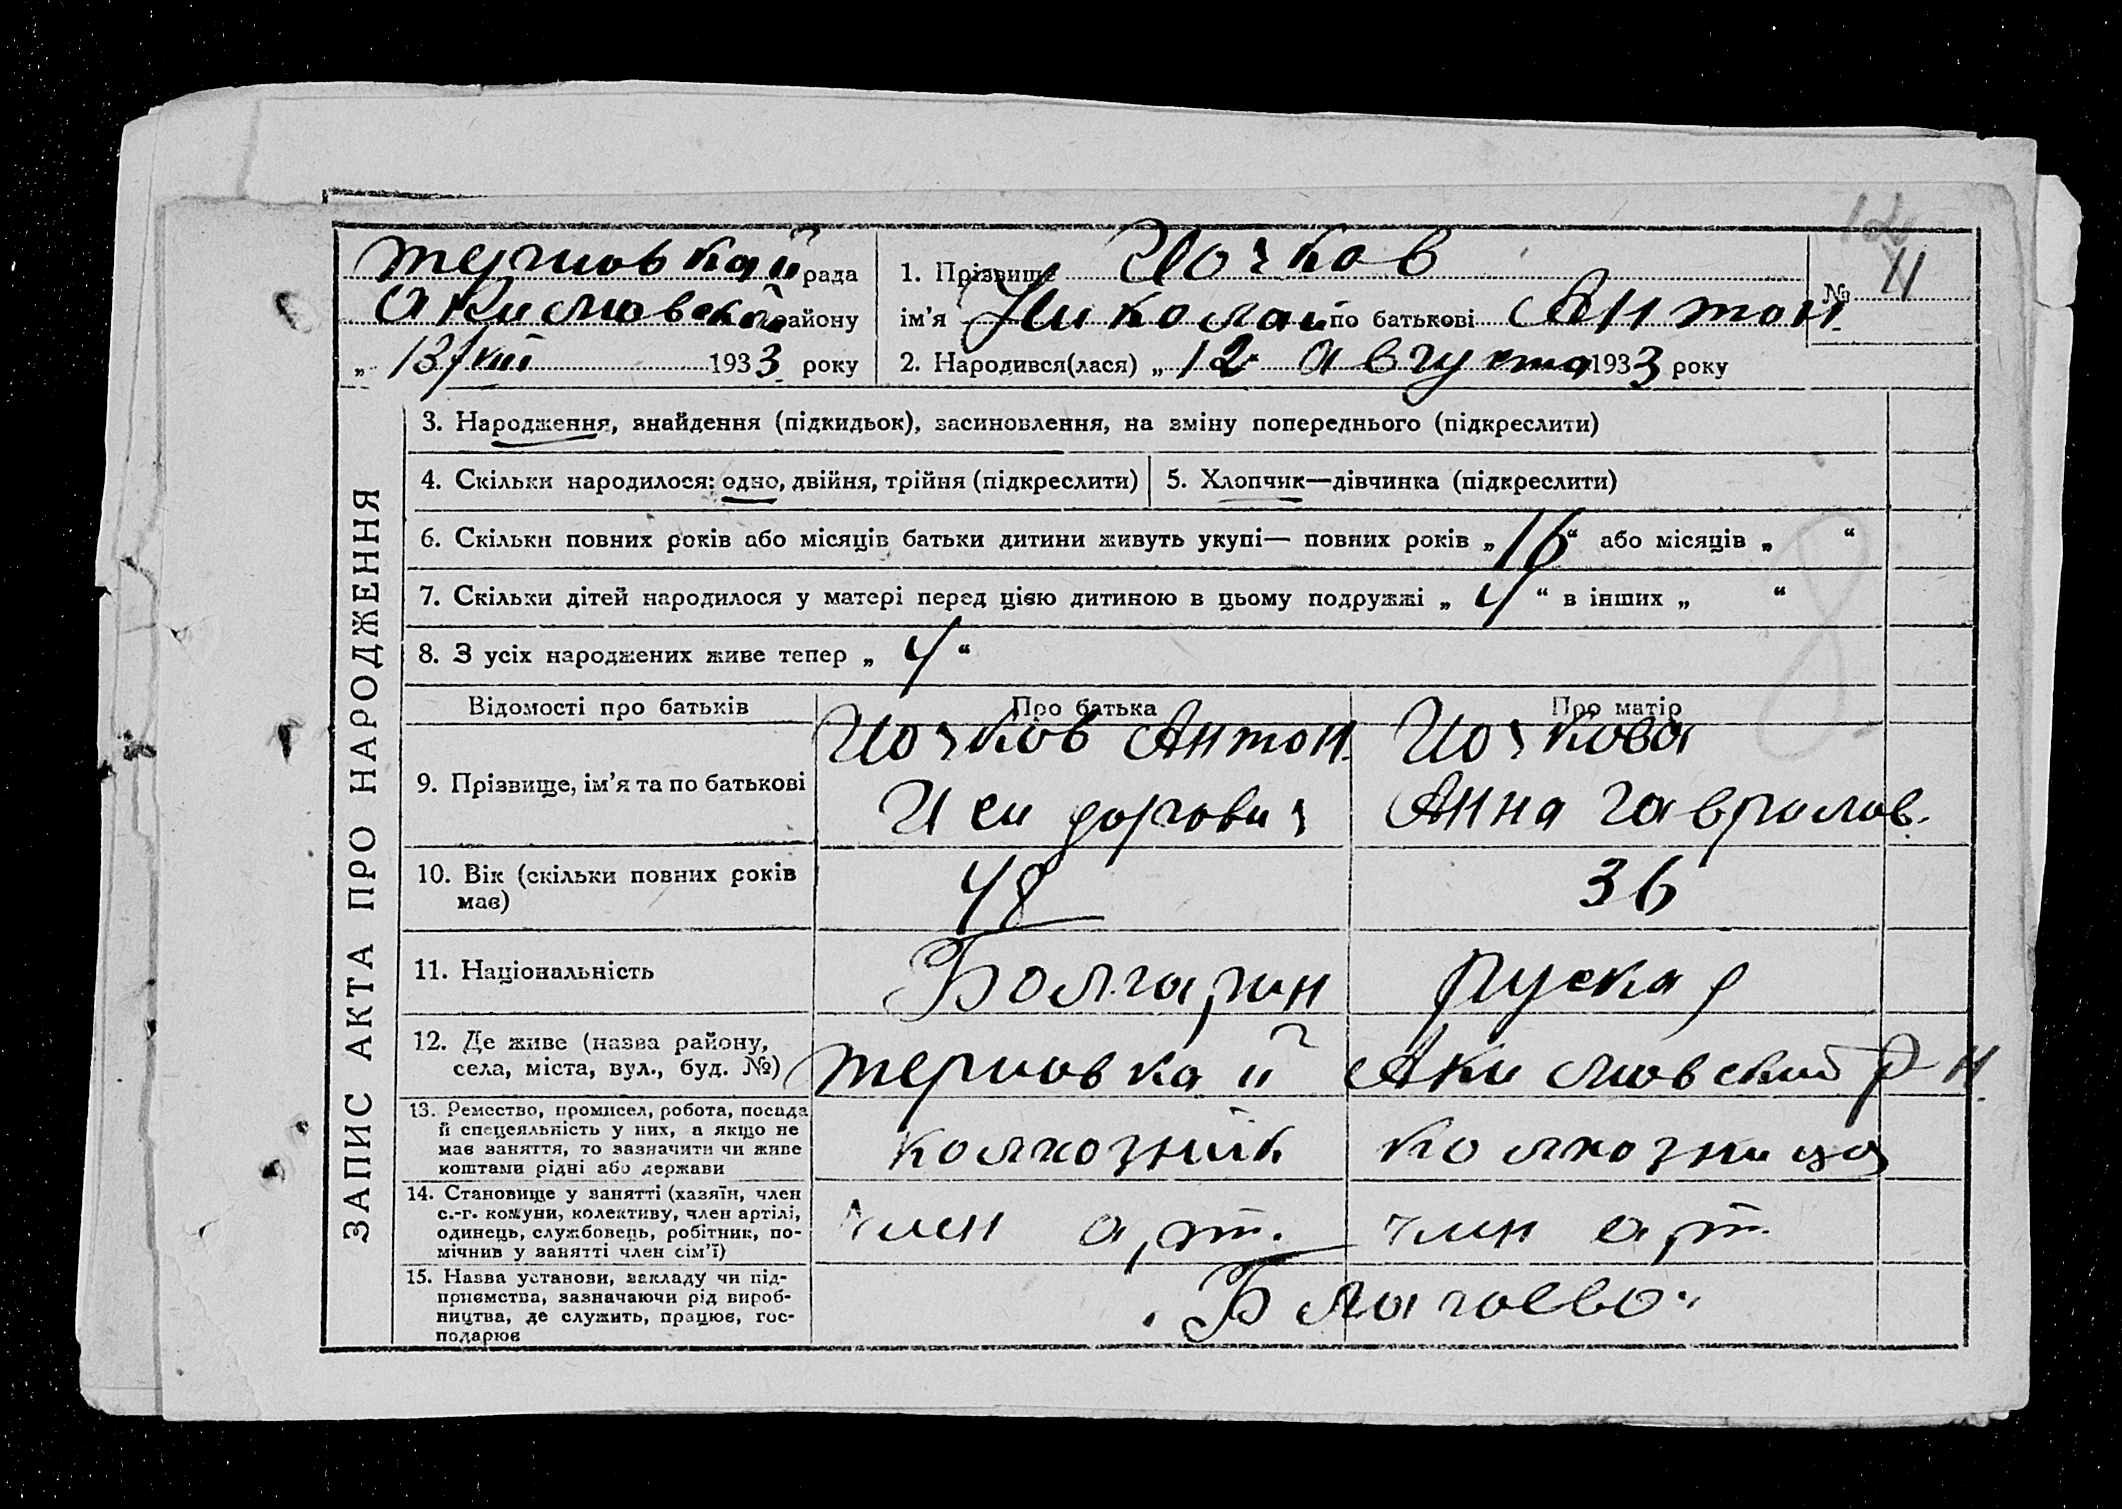 ЗАПИС АКТА ПРО НАРОДЖЕННЯ
12
терновкай рада
Акимовской району
„ 13/VIII 1933 року
1. Прізвище Иочков
ім'я Николай по батькові Антон.
№ 11
2. Народився(лася) „ 12 Августа 1933 року
3. Народження, знайдення (підкидьок), засиновлення, на зміну попереднього (підкреслити)
4. Скільки народилося: одно, двійня, трійня (підкреслити)
5. Хлопчик—дівчинка (підкреслити)
6. Скільки повних років або місяців батьки дитини живуть укупі— повних років „ 16 “ або місяців „ “
7. Скільки дітей народилося у матері перед цією дитиною в цьому подружжі „ 4 “ в інших „ “
8. З усіх народжених живе тепер „ 4 “
8
Відомості про батьків
Про батька
Про матір
9. Прізвище, ім'я та по батькові
Иочков Антон.
Исидорович
Иочкова
Анна Гаврилов.
10. Вік (скільки повних років
має)
48
36
11. Національність
Болгарин
руская
12. Де живе (назва району,
села, міста, вул., буд. №)
терновкай Акимовский р н.
13. Ремество, промисел, робота, посада
й спецеяльність у них, а якщо не
має заняття, то зазначити чи живе
коштами рідні або держави
колхозник
колхозница
14. Становище у занятті (хазяїн, член
с.-г. комуни, колективу, член артілі,
одинець, службовець, робітник, по-
мічнив у занятті член сім'ї)
член арт.
член арт.
15. Назва установи, закладу чи під-
приємства, зазначаючи рід вироб-
ництва, де служить, працює, гос-
подарює
„Благоево“